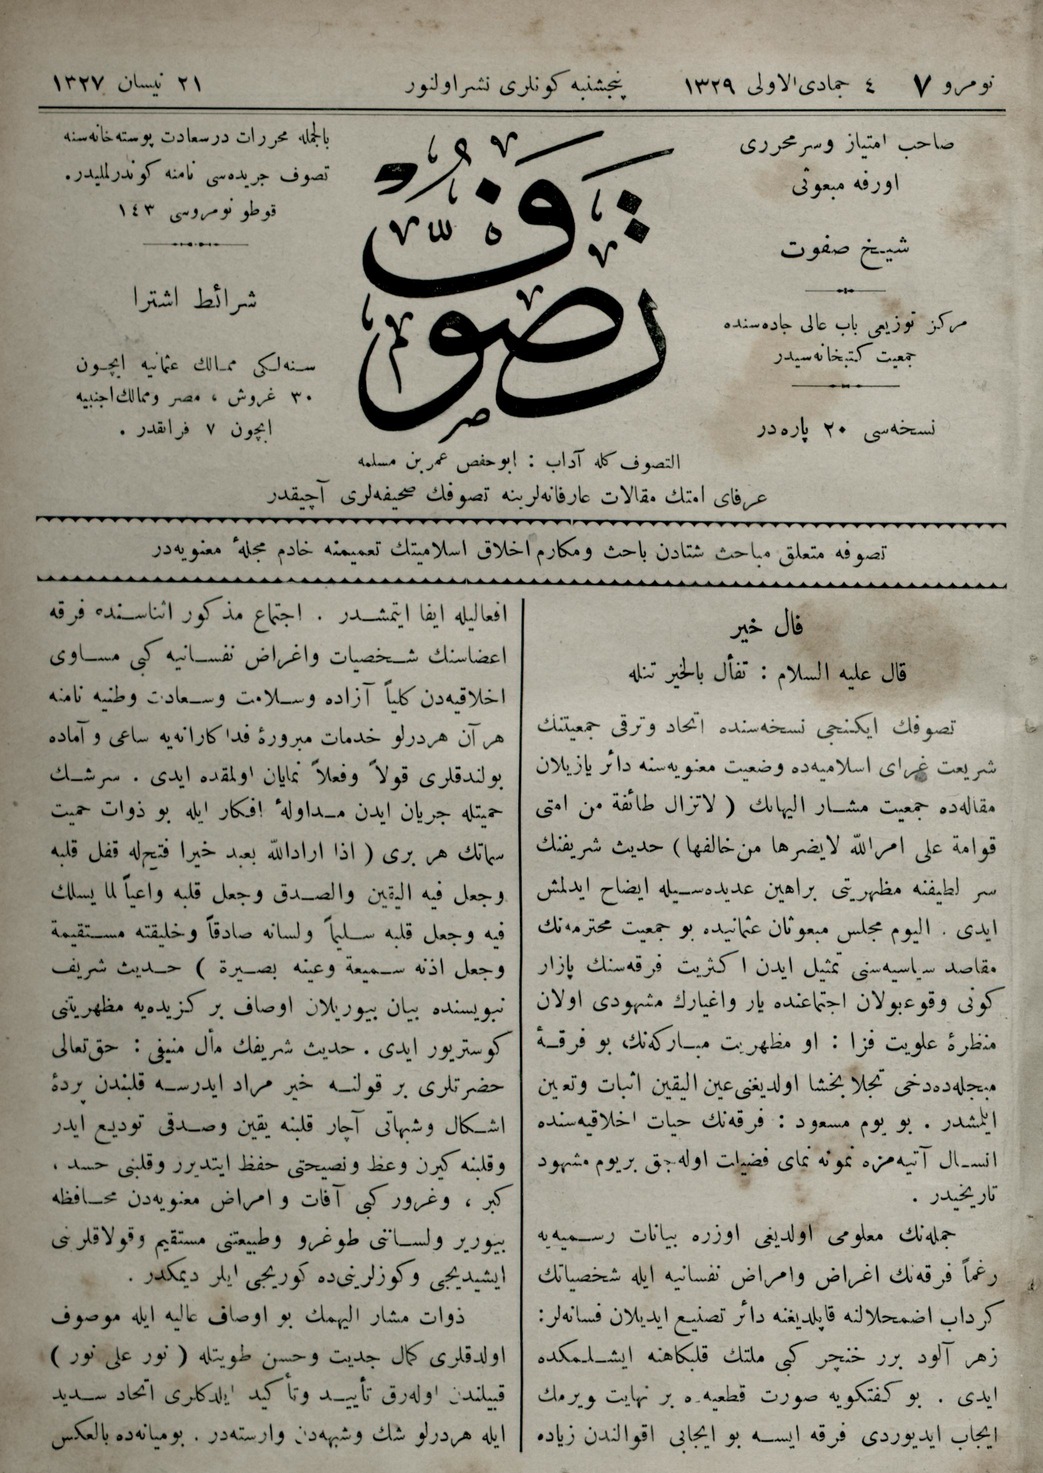 نومرو ٧
٤ جمادى الاولى ١٣٢٩
پنجشنبه كونلرى نشر اولنور
٢١ نيسان ١٣٢٧
صاحب امتياز وسرمحررى
اورفه مبعوثى
شيخ صفوت
مركز توزيعى باب عالى جاده‌سنده
جمعيت كتبخانه‌سيدر
نسخه‌سى ٢٠ پاره‌در
تصوف
بالجمله محررات درسعادت پوسته‌خانه‌سنه
تصوف جريده‌سى نامنه كوندرلمليدر.
قوطو نومروسى ١٤٣
شرائط اشترا
سنه‌لكى ممالك عثمانيه ايچون
٣٠ غروش ، مصر وممالك اجنبيه
ايچون ٧ فرانقدر .
التصوف كله آداب : ابوحفص عمر بن مسلمه
عرفاى امتك مقالات عارفانه‌لرينه تصوفك صحيفه‌لرى آچيقدر
تصوفه متعلق مباحث شتادن باحث ومكارم اخلاق اسلاميتك تعميمنه خادم مجلهٔ معنويه‌در
فال خير
قال عليه السلام : تفأل بالخير تنله
تصوفك ايكنجى نسخه‌سنده اتحاد وترقى جمعيتنك
شريعت غراى اسلاميه‌ده وضعيت معنويه‌سنه دائر يازيلان
مقاله‌ده جمعيت مشار اليهانك ( لاتزال طائفة من امتى
قوامة على امرالله لايضرها من خالفها ) حديث شريفنك
سر لطيفنه مظهريتى براهين عديده‌سيله ايضاح ايدلمش
ايدى . اليوم مجلس مبعوثان عثمانيده بو جمعيت محترمه‌نك
مقاصد سياسيه‌سنى تمثيل ايدن اكثريت فرقه‌سنك پازار
كونى وقوعبولان اجتماعنده يار واغيارك مشهودى اولان
منظرهٔ علويت فزا : او مظهريت مباركه‌نك، بو فرقهٔ
مبجله‌ده‌دخى تجلا بخشا اولديغنى عين اليقين اثبات وتعيين
ايلمشدر . بو يوم مسعود : فرقه‌نك حيات اخلاقيه‌سنده
انسال آتيه‌مزه نمونه نماى فضيلت اوله‌جق بر يوم مشهود
تاريخيدر .
جمله‌نك معلومى اولديغى اوزره بيانات رسميه‌يه
رغماً فرقه‌نك اغراض وامراض نفسانيه ايله شخصياتك
كرداب اضمحلالنه قاپلديغنه دائر تصنيع ايديلان فسانه‌لر:
زهر آلود برر خنجر كبى ملتك قلبكاهنه ايشلمكده
ايدى . بو كفتكويه صورت قطعيه‌ده بر نهايت ويرمك
ايجاب ايديوردى فرقه ايسه بو ايجابى اقوالندن زياده
افعاليله ايفا ايتمشدر . اجتماع مذكور اثناسنده فرقه
اعضاسنك شخصيات واغراض نفسانيه كبى مساوى
اخلاقيه‌دن كلياً آزاده وسلامت وسعادت وطنيه نامنه
هر آن هردرلو خدمات مبرورهٔ فداكارانه‌يه ساعى وآماده
بولندقلرى قولاً وفعلاً نمايان اولمقده ايدى . سرشك
حميتله جريان ايدن مداولهٔ افكار ايله بو ذوات حميت
سماتك هر برى ( اذا ارادالله بعبد خيرا فتح‌له قفل قلبه
وجعل فيه اليقين والصدق وجعل قلبه واعياً لما يسلك
فيه وجعل قلبه سليماً ولسانه صادقاً وخليقته مستقيمة
وجعل اذنه سميعة وعينه بصيرة ) حديث شريف
نبويسنده بيان بيوريلان اوصاف بركزيده‌يه مظهريتنى
كوستريور ايدى . حديث شريفك مأل منيفى : حق‌تعالى
حضرتلرى بر قولنه خير مراد ايدرسه قلبندن پردهٔ
اشكال وشبهاتى آچار قلبنه يقين وصدقى توديع ايدر
وقلبنه كيرن وعظ ونصيحتى حفظ ايتديرر وقلبنى حسد ،
كبر ، وغرور كبى آفات و امراض معنويه‌دن محافظه
بيورير ولساننى طوغرو وطبيعتنى مستقيم وقولاقلرينى
ايشيديجى وكوزلرينى‌ده كوريجى ايلر ديمكدر .
ذوات مشار اليهمك بو اوصاف عاليه ايله موصوف
اولدقلرى كمال جديت وحسن طويتله ( نور على نور )
قبيلندن اوله‌رق تأييد وتأكيد ايلدكلرى اتحاد سديد
ايله هردرلو شك وشبهه‌دن وارسته‌در . بوميانه‌ده بالعكس